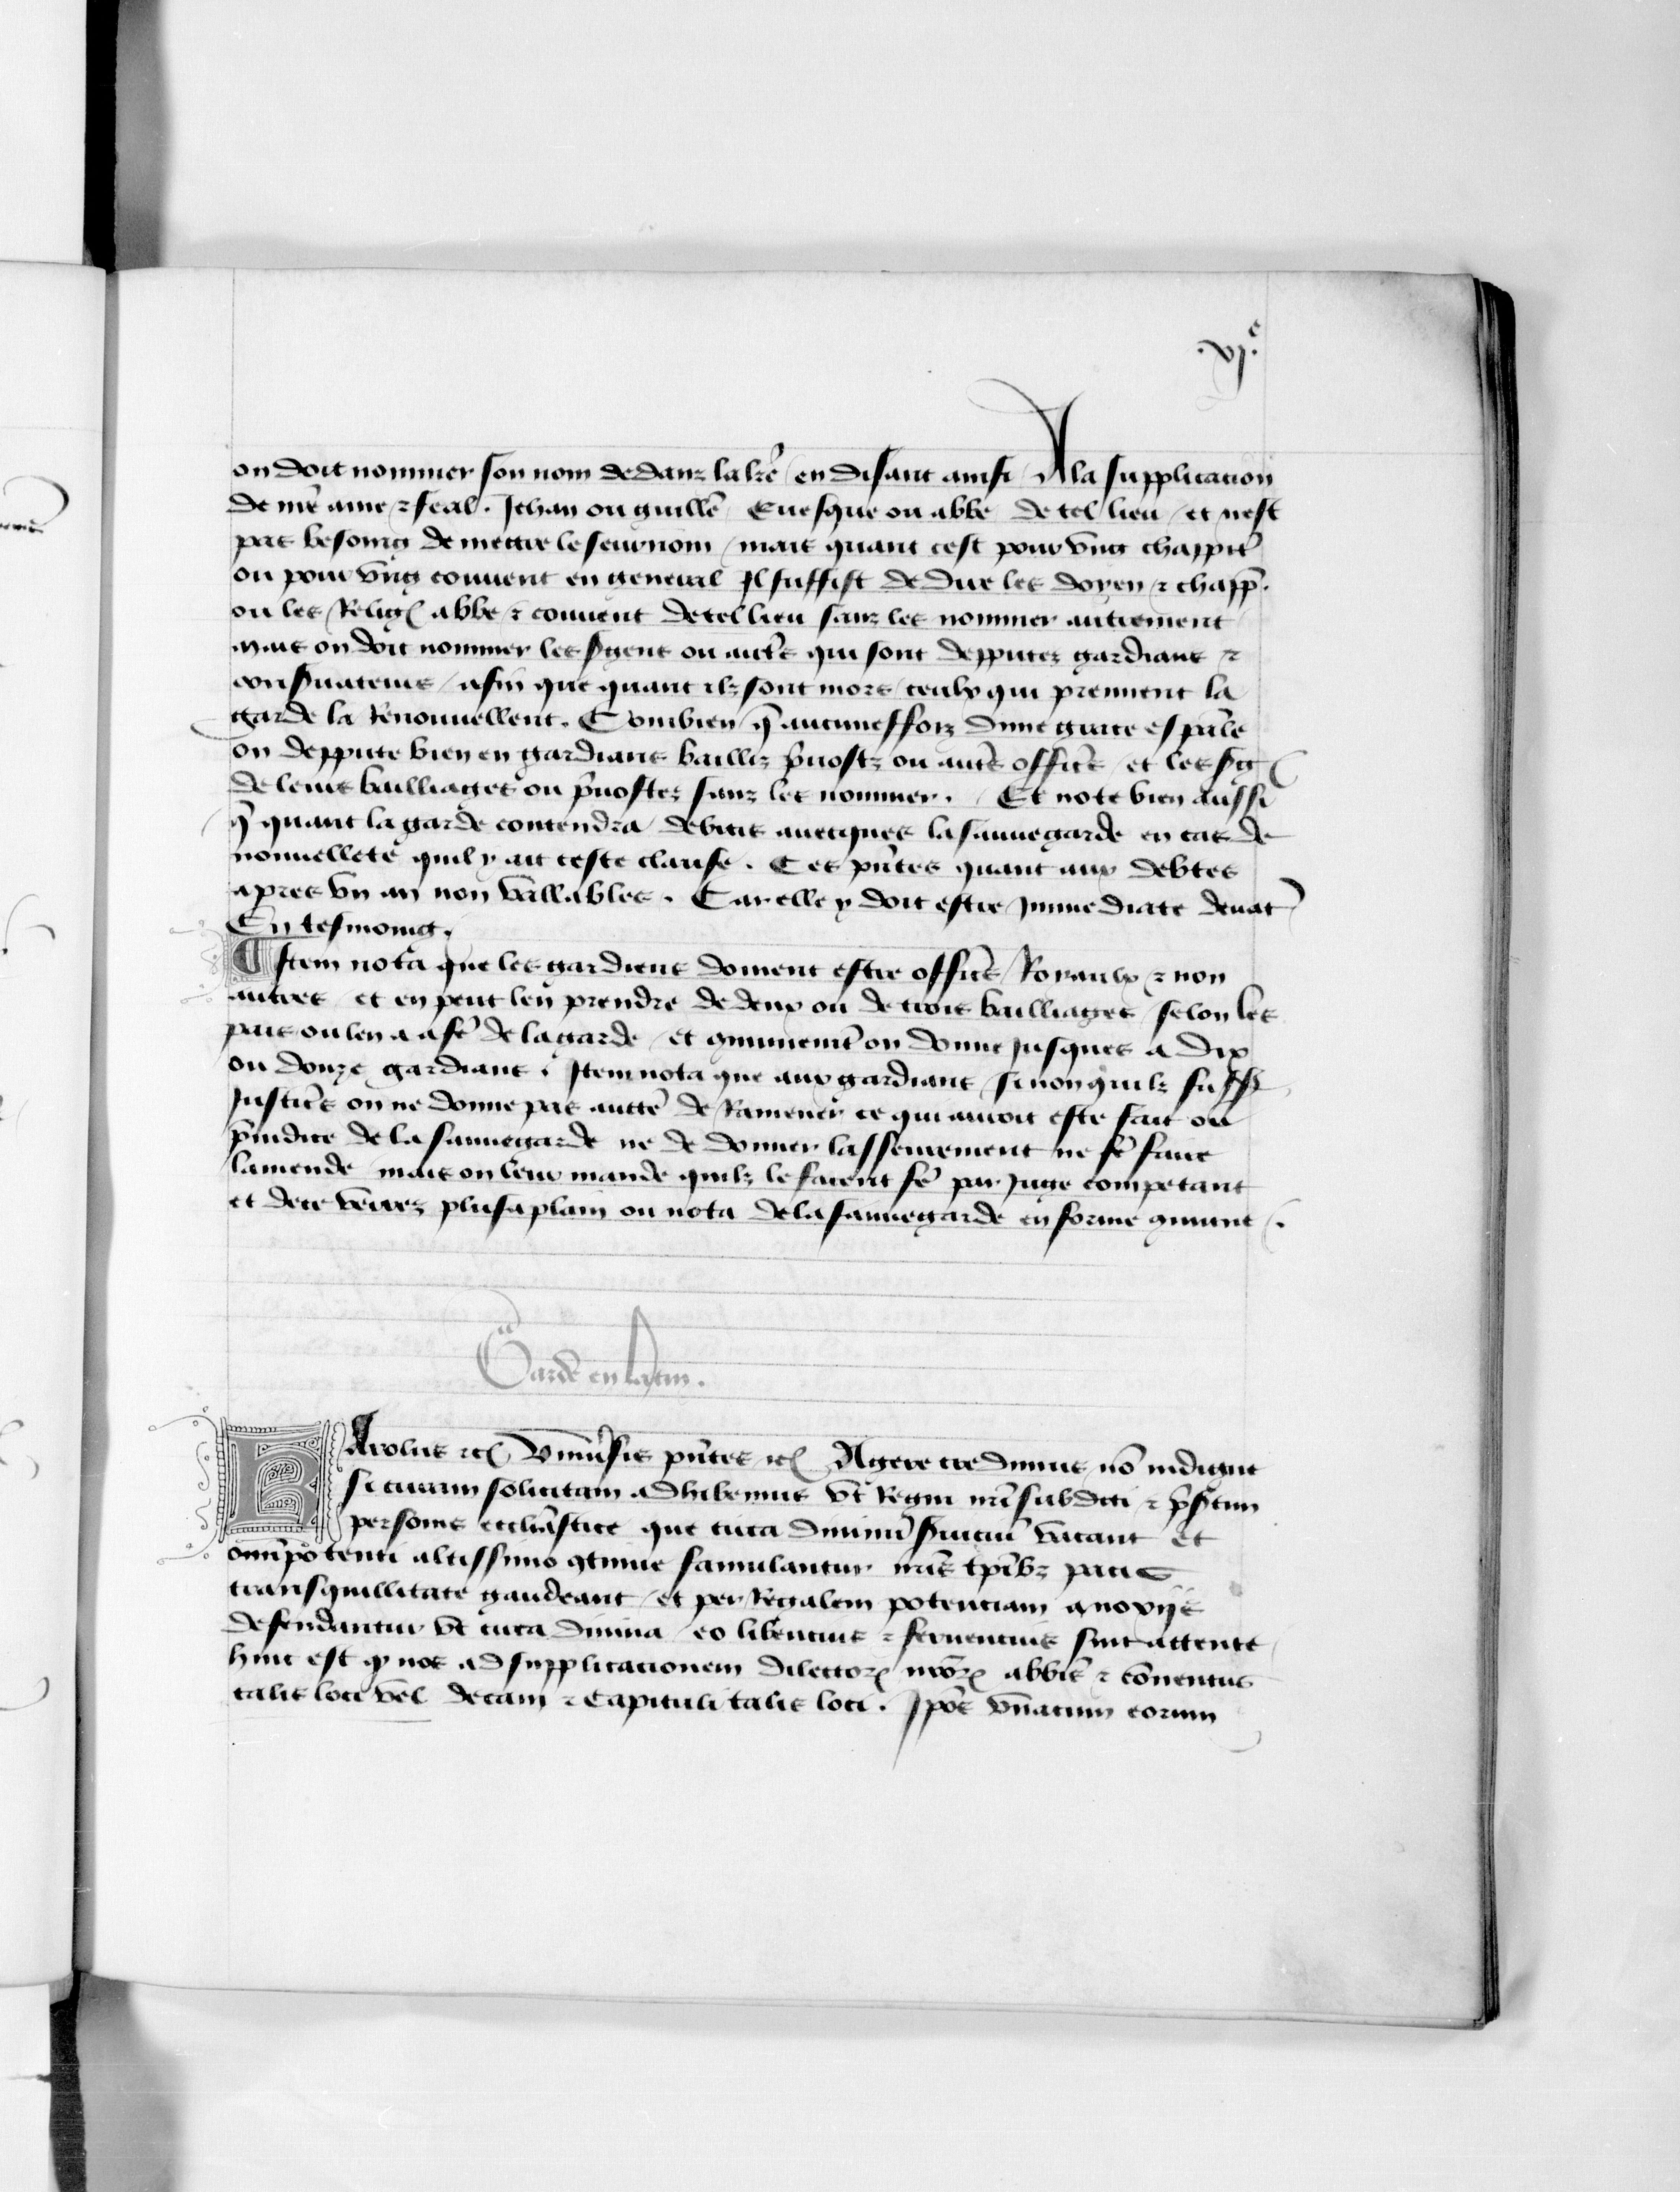 .vj.e
on doit nommer son nom dedanz la lr̃e / en disant ainsi / A la supplicacion
de nr̃e ame ⁊ feal. Jehan ou guillẽ Euesque ou abbe de tel lieu / et nest
pas besoing de mettre le seurnom / mais quant cest pour vng chappitr̃
ou pour vng conuent en general Il suffist de dire les doyen ⁊ chapp̃.
ou les Relig abbe ⁊ conuent de tel lieu sanz les nommer autrement
mais on doit nommer les sgens ou autr̃s qui sont depputez gardians ⁊
conseruateurs / afin que quant ilz sont mors / ceulx qui prennent la
garde la Renouuellent. Combien q̃ aucuneffoiz dune grace esp̃ale
on deppute bien en gardians bailliz p̃uostz ou autr̃s officr̃s / et les sg
de leurs bailliages ou p̃uostez sanz les nommer. / Et note bien aussi
q̃ quant la garde contendra debitis auecques la sauuegarde en cas de
nouuellete quil y ait ceste clause. Ces pñtes quant aux debtes
apres vn an non vaillables. Car elle y doit estre Jmmediate deuãt
En tesmoing.
¶ Item nota que les gardiens doiuent estre officr̃s Royaulx ⁊ non
autres et en peut len prendre de deux ou de trois bailliages / selon les
pais ou len a a fẽ de la garde / et gmunemẽt on donne jusques a dix
ou douze gardians. Item nota que aux gardians / sinon quilz fuss
Justicr̃s on ne donne pas auctẽ de Ramener ce qui auroit este fait ou
p̃iudice de la sauuegarde ne de donner lasseurement ne fẽ faire
lamende mais on leur mande quilz le facent fẽ par juge competant
et de ce verrez plus a plain ou nota de la sauuegarde en forme gmune.
Garde en latin.
KArolus ⁊c Vniuẽsis pñtes ⁊c Agere credimus nõ indigne
si curam solicitam adhibemus vt Regni nr̃i subditi ⁊ p̃sertim
persone eccl̃iastice que circa diuinũ seruiciũ vacant et
omĩpotenti altissimo gtinue famulantur nr̃is tpĩbz pacis
transquillitate gaudeant / et per Regalem potenciam a noxijs
defendantur vt circa diuina / eo libencius ⁊ feruencius sint attente
hinc est q̃ nos ad supplicacionem dilector nr̃or abbĩs ⁊ cõuentus
talis loci vel decani ⁊ capituli talis loci. Ip̃os vñacum eorum